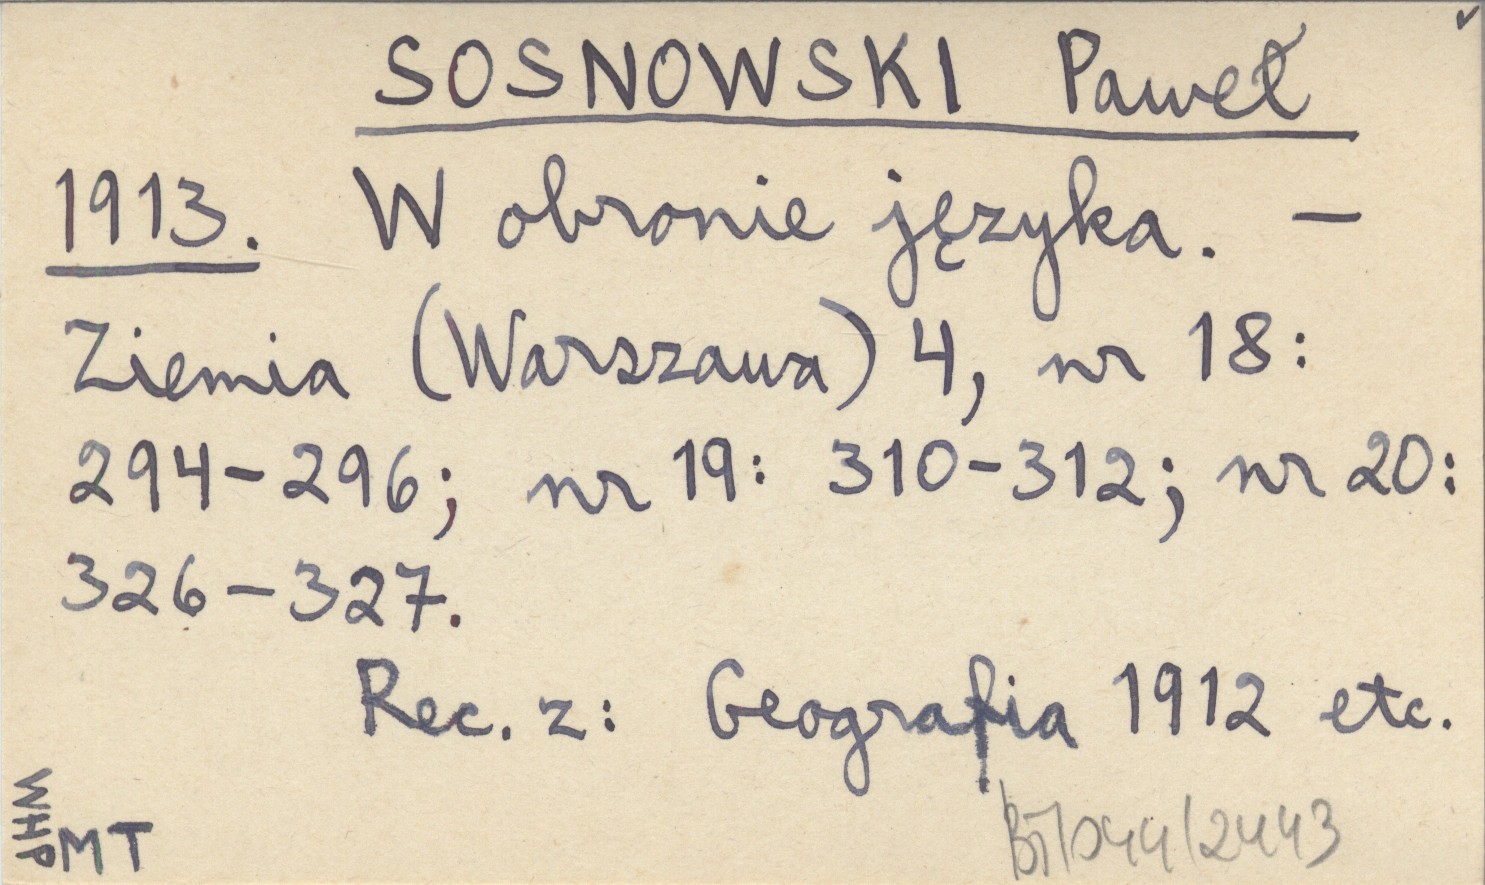 SOSNOWSKI Paweł
1913. W obronie języka. —
Ziemia (Warszawa) 4, nr 18:
294-296; nr 19: 310-312; nr 20:
326-327.
Rec. z: Geografia 1912 etc.
WHP
MT
/044/2443